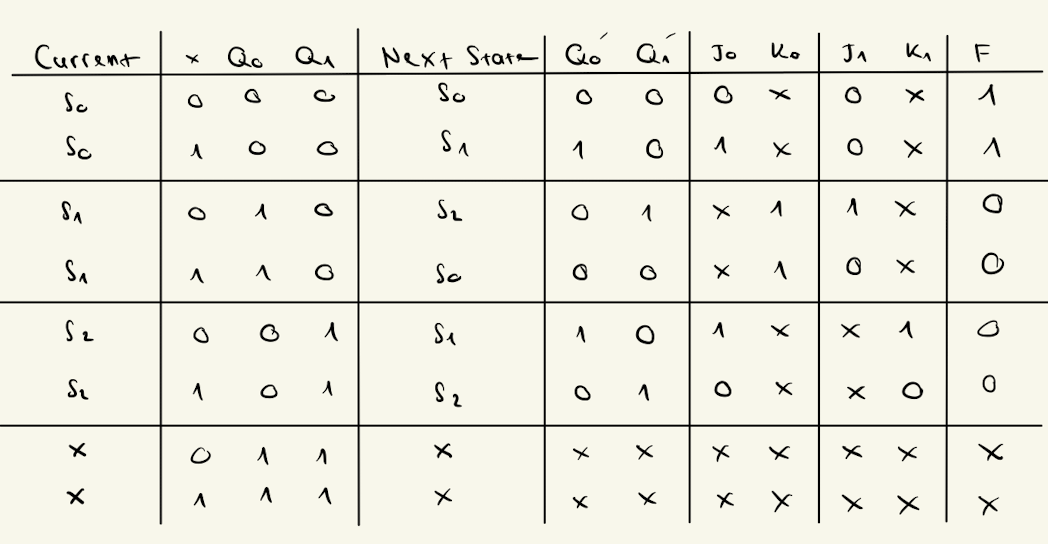 Current x Q0 Q1 Next State Q0' Q1' J0 K0 J1 K1 F
S0 0 0 0 S0 0 0 0 x 0 x 1
S0 1 0 0 S1 1 0 1 x 0 x 1
S1 0 1 0 S2 0 1 x 1 1 x 0
S1 1 1 0 S0 0 0 x 1 0 x 0
S2 0 0 1 S1 1 0 1 x x 1 0
S2 1 0 1 S2 0 1 0 x x 0 0
x 0 1 1 x x x x x x x x
x 1 1 1 x x x x x x x x